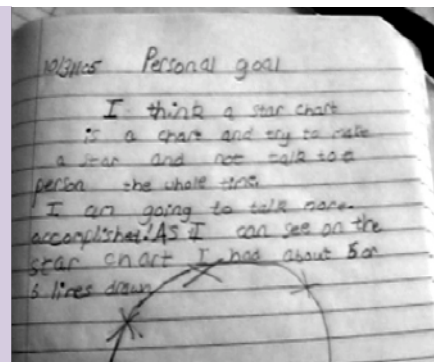 10/31/05 Personal goal
I think a star chart
is a chart and try to make
a star and not talk to a
person the whole time.
I am going to talk more.
accomplished! AS I can see on the
star chart I had about 5 or
6 lines drawn